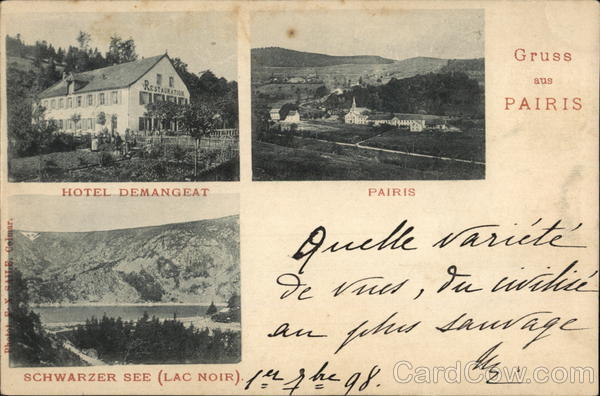 Gruss
aus
PAIRIS
RESTAURATION
HOTEL DEMANGEAT
PAIRIS
Quelle variété
de vues, du civilisé
au plus sauvage
1er 7bre 98.
SCHWARZER SEE (LAC NOIR).
Photot. F. X. SAILÉ, Colmar.
CardCow.com